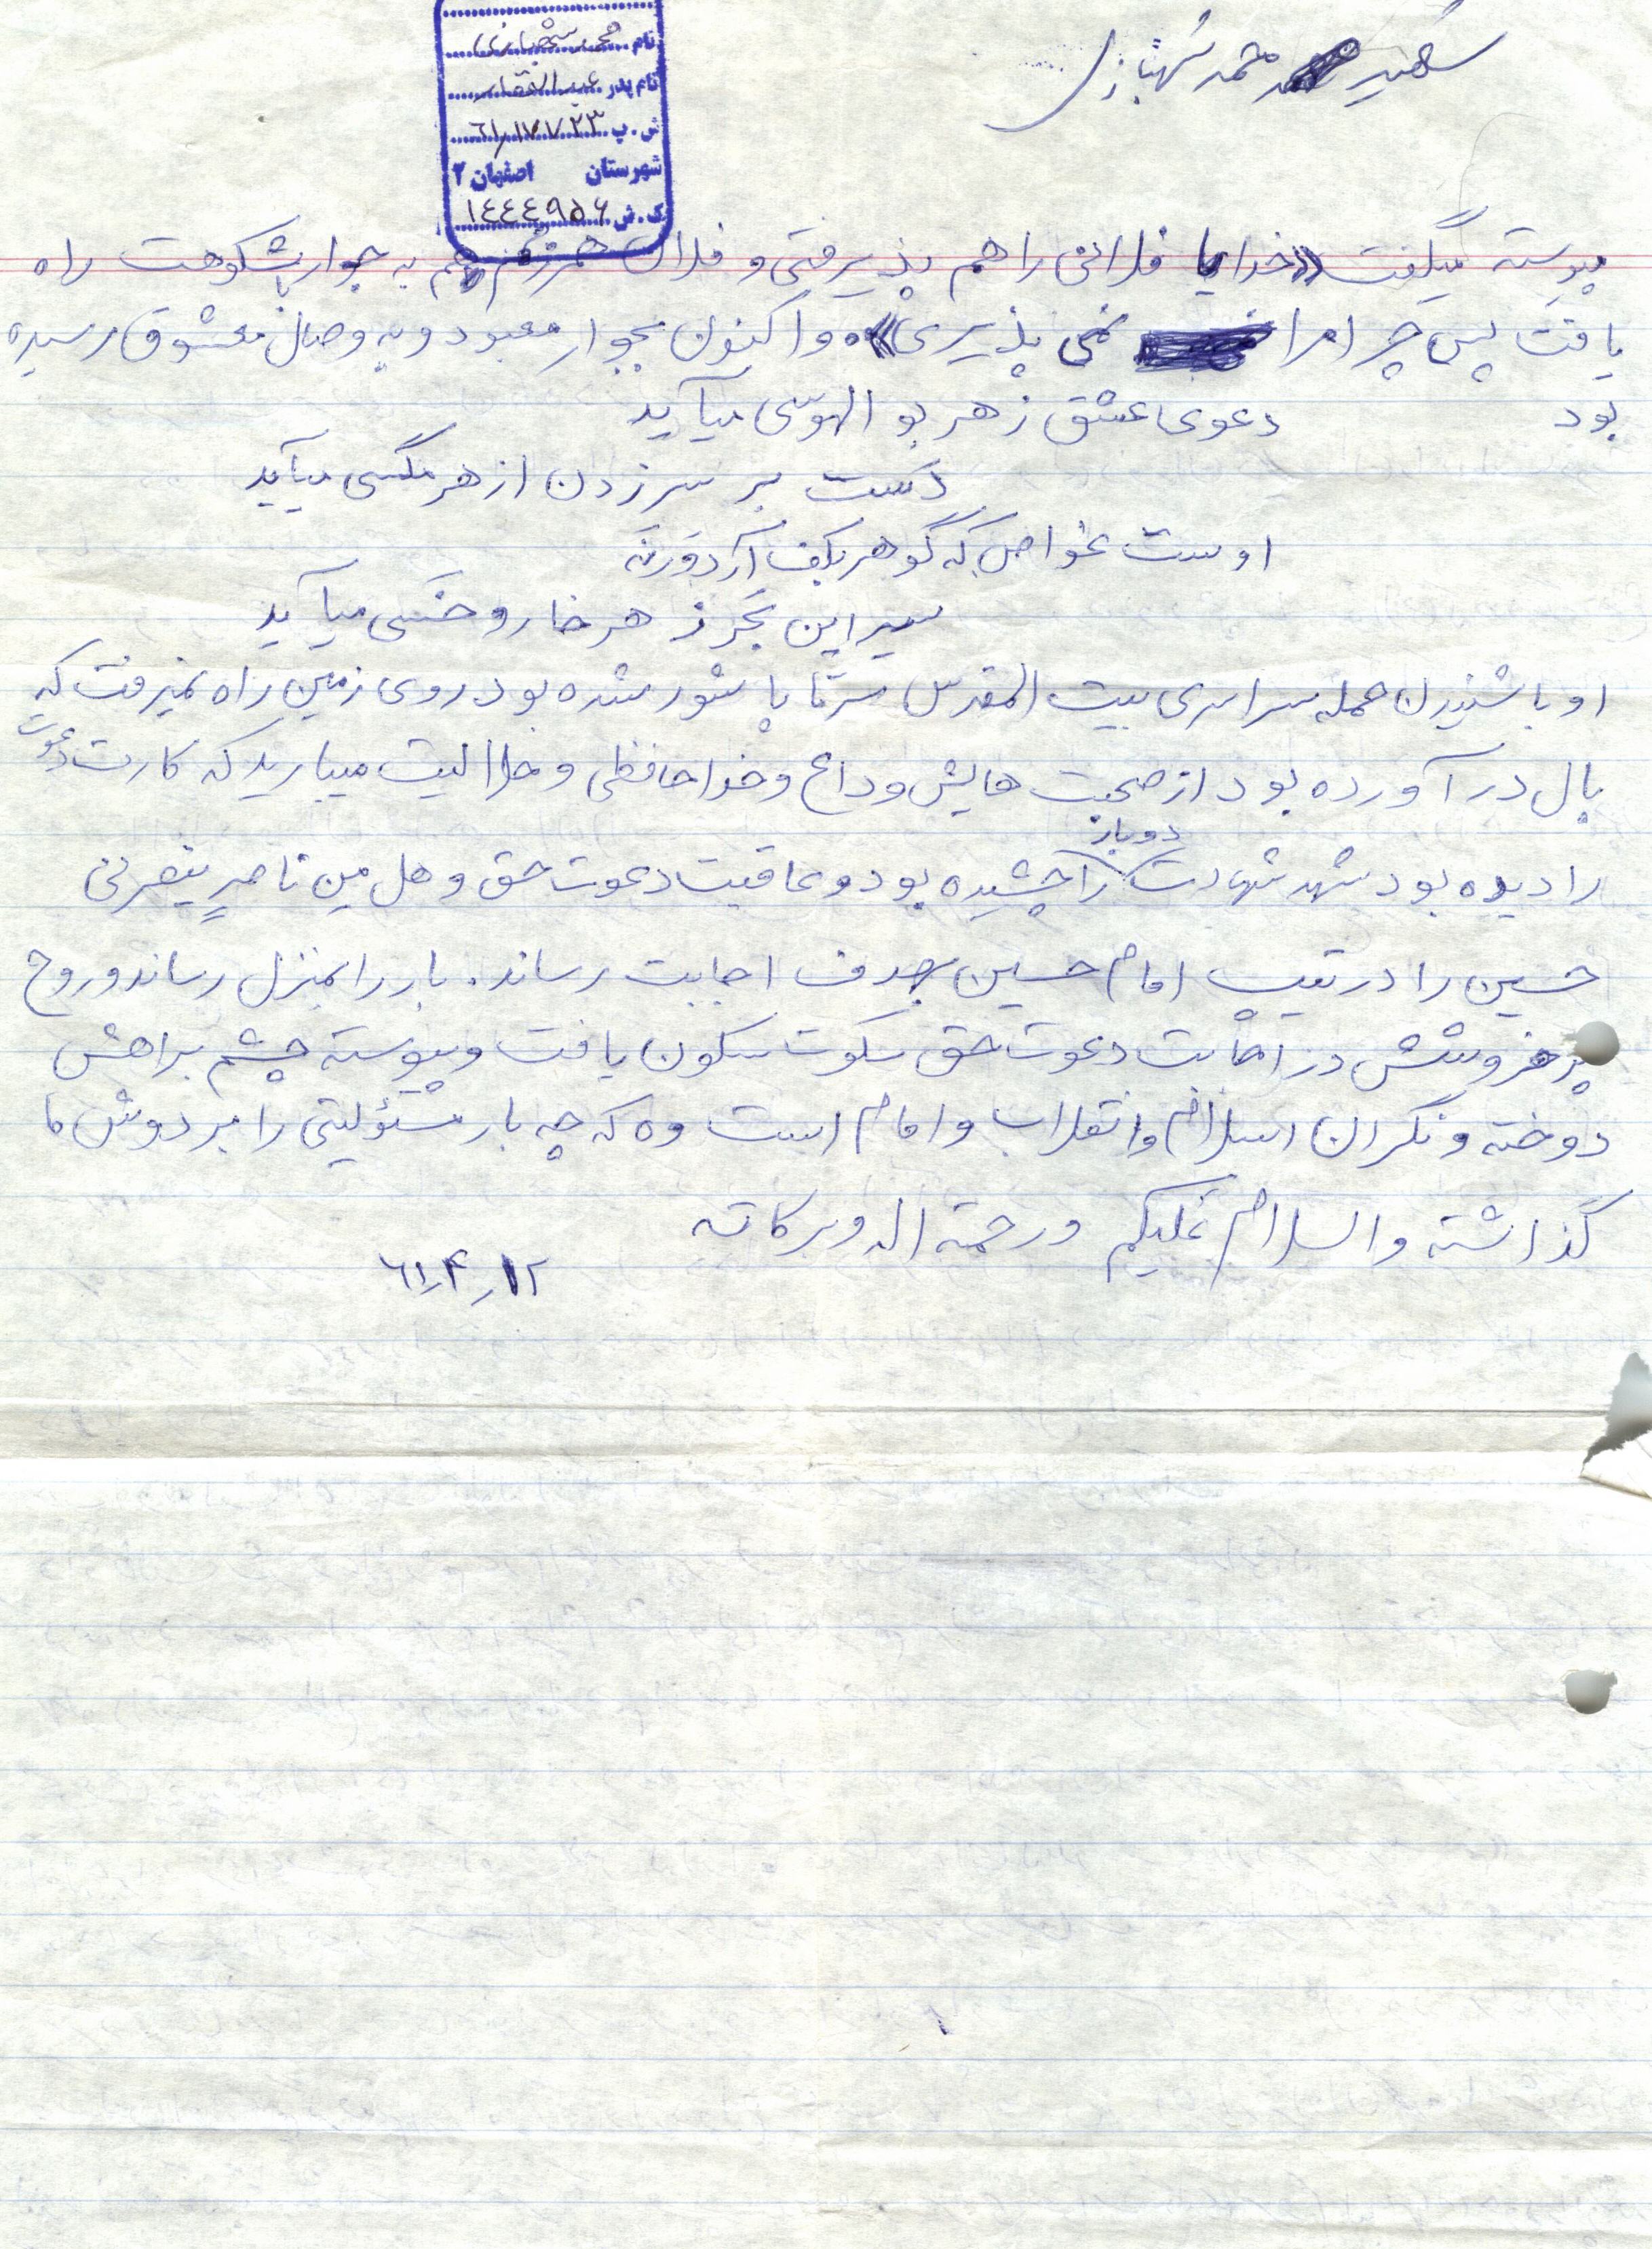 شهید محمد شهبازی
نام محمد شهبازی
نام پدر عبدالغفار
ش.پ ۶۱/۱۷۷۲۳
شهرستان اصفهان ۲
ک.ش ۱۴۴۴۹۵۶
پیوسته میگفت «خدایا فلانی را هم پذیرفتی و فلان همرزمم هم به جوار باشکوهت راه
یافت پس چرا مرا نمی پذیری» و اکنون بجوار معبود و به وصال معشوق رسیده
بود
دعوی عشق ز هر بوالهوسی میآید
دست بر سر زدن از هر مگسی میآید
اوست غواص که گوهر بکف آرد ورنه
سیر این بحر ز هر خار و خسی میآید
او با شنیدن حمله سراسری بیت المقدس سرتا پا شور شده بود روی زمین راه نمیرفت که
بال در آورده بود از صحبت هایش وداع و خداحافظی و حلالیت میبارید که کارت دعوت
را دیده بود شهد شهادت را دوبار چشیده بود و عاقبت دعوت حق و هل من ناصرٍ ینصرنی
حسین را در تیپ امام حسین بهدف اجابت رساند. بار را بمنزل رساند و روح
پر خروشش در اجابت دعوت حق سکوت سکون یافت و پیوسته چشم براهش
دوخته و نگران اسلام و انقلاب و امام است وه که چه بار مسئولیتی را بر دوش ما
گذاشته والسلام علیکم ورحمته اله وبرکاته
۶۱/۴/۱۲